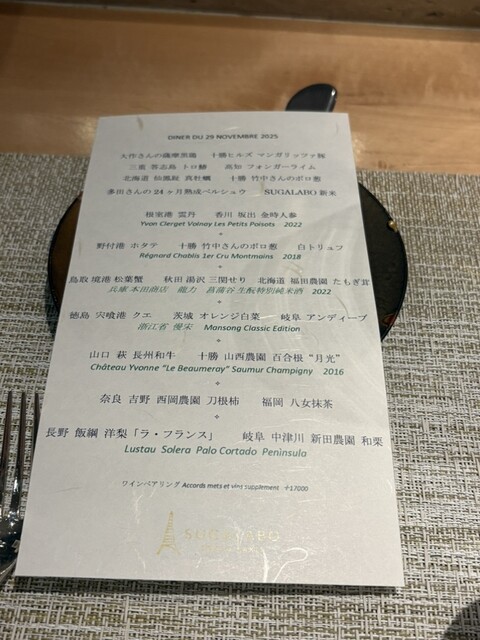 DINER DU 29 NOVEMBRE 2025
大作さんの薩摩黒鶏 十勝ヒルズ マンガリッツァ豚
三重 答志島 トロ鰆 高知 フィンガーライム
北海道 仙鳳趾 真牡蠣 十勝 竹中さんのポロ葱
多田さんの24ヶ月熟成ペルシュウ SUGALABO 新米
根室港 雲丹 香川 坂出 金時人参
Yvon Clerget Volnay Les Petits Poisots 2022
野付港 ホタテ 十勝 竹中さんのポロ葱 白トリュフ
Régnard Chablis 1er Cru Montmains 2018
鳥取 境港 松葉蟹 秋田 湯沢 三関せり 北海道 福田農園 たもぎ茸
兵庫 本田商店 龍力 菖蒲谷 生酛特別純米酒 2022
徳島 宍喰港 クエ 茨城 オレンジ白菜 岐阜 アンディーブ
浙江省 慢宋 Mansong Classic Edition
山口 萩 長州和牛 十勝 山西農園 百合根 “月光”
Château Yvonne “Le Beaumeray” Saumur Champigny 2016
奈良 吉野 西岡農園 刀根柿 福岡 八女抹茶
長野 飯綱 洋梨「ラ・フランス」 岐阜 中津川 新田農園 和栗
Lustau Solera Palo Cortado Peninsula
ワインペアリング Accords mets et vins supplément +17000
SUGALABO